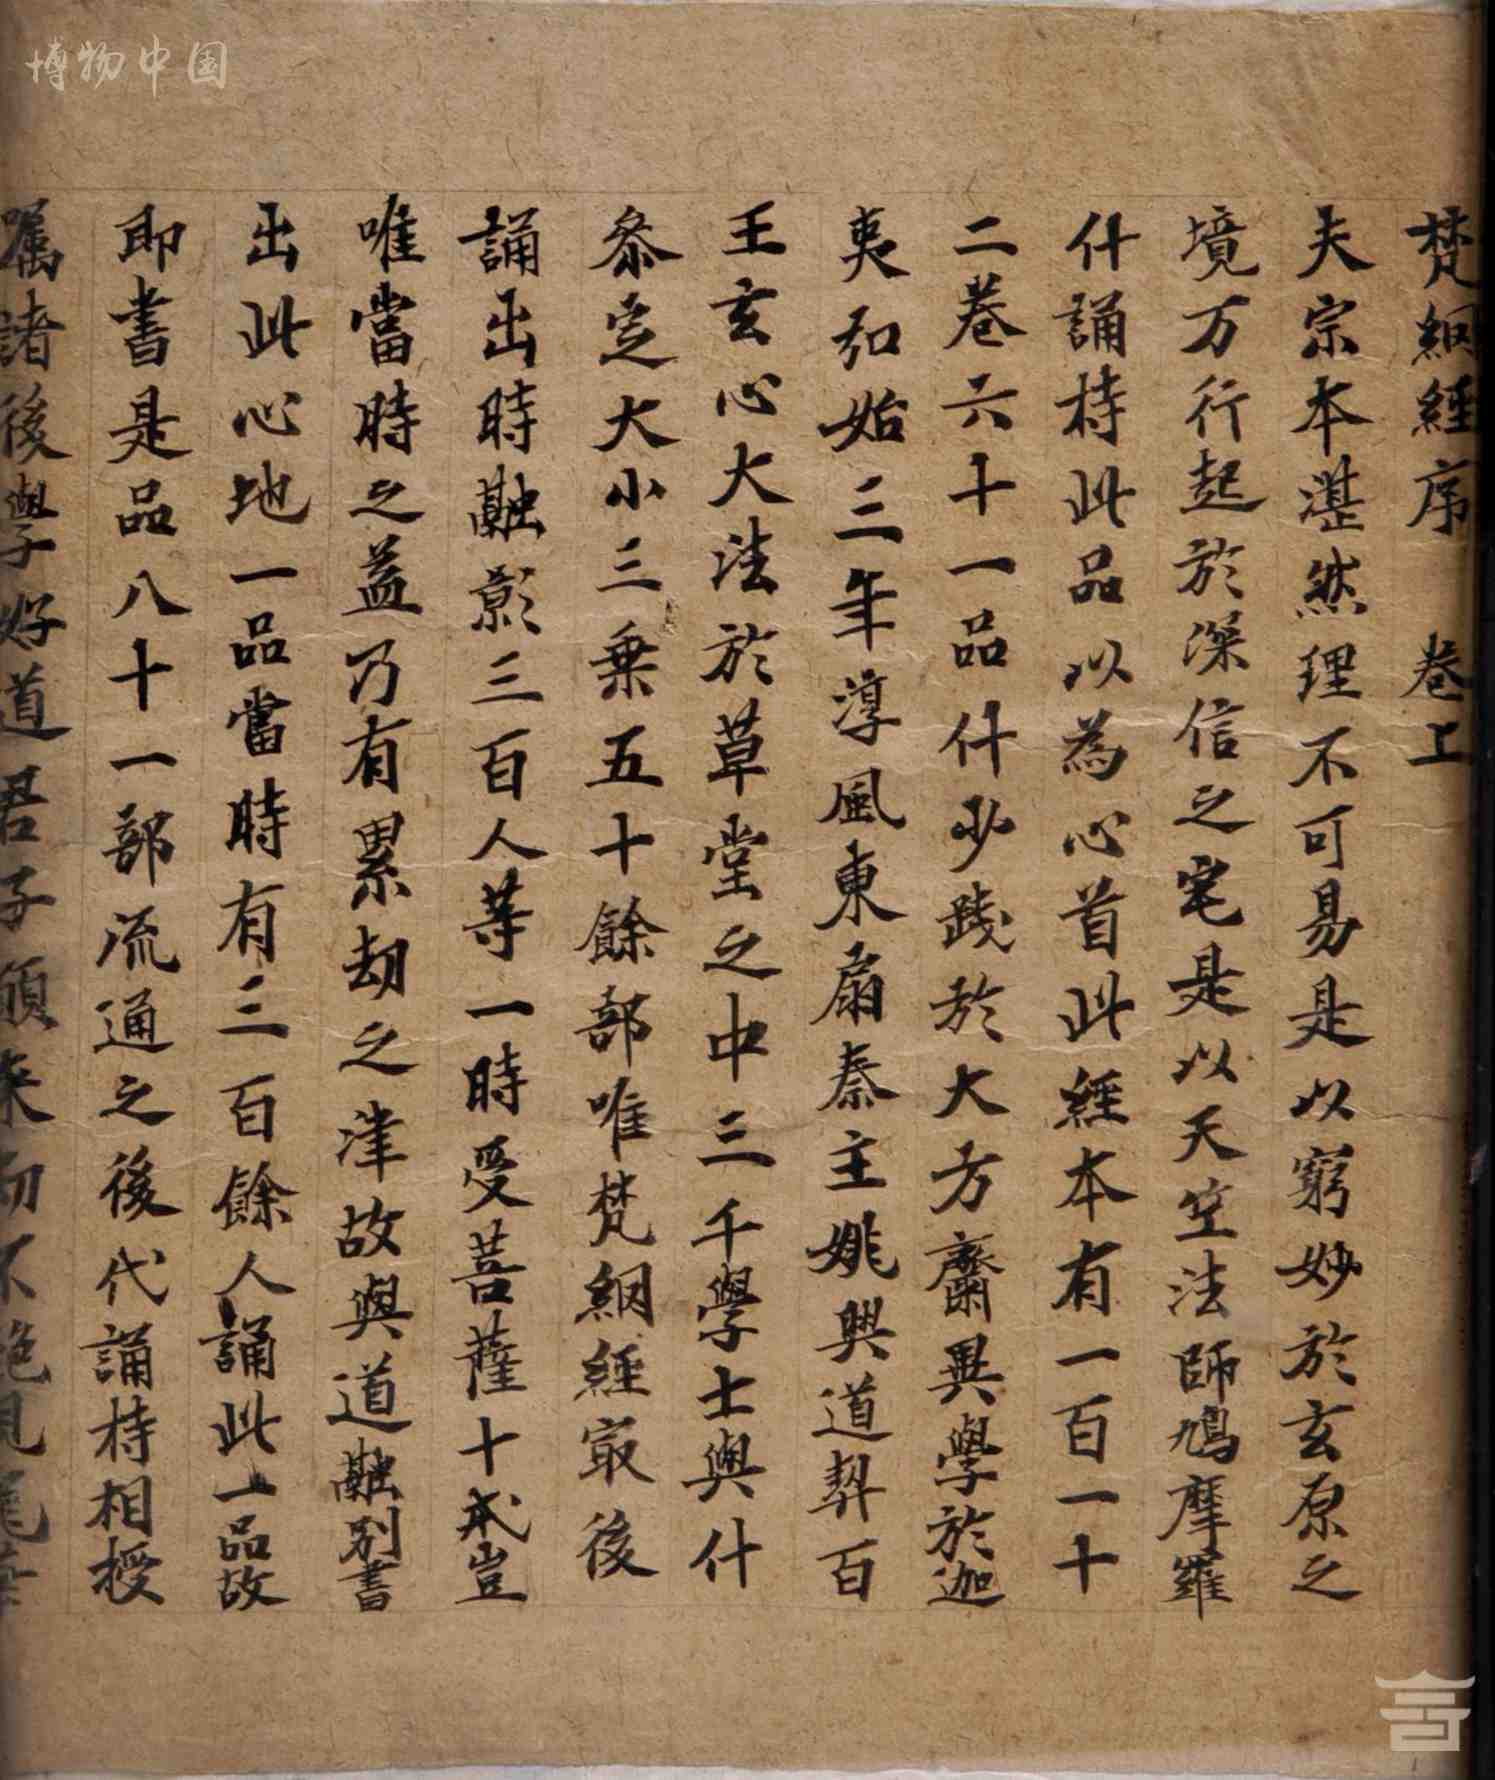 博物中国
梵網經序　卷上
夫宗本湛然理不可易是以窮妙於玄原之
境万行起於深信之宅是以天空法師鳩摩羅
什誦持此品以為心首此經本有一百一十
二卷六十一品什少踐於大方齋異學於迦
夷弘始三年淳風東扇秦主姚興道契百
王玄心大法於草堂之中三千學士與什
叅定大小三乗五十餘部唯梵網經㝡後
誦出時融影三百人等一時受菩薩十戒豈
唯當時之益乃有累劫之津故與道融別書
出此心地一品當時有三百餘人誦此一品故
即書是品八十一部流通之後代誦持相授
囑諸後學好道君子願来劫不絶見